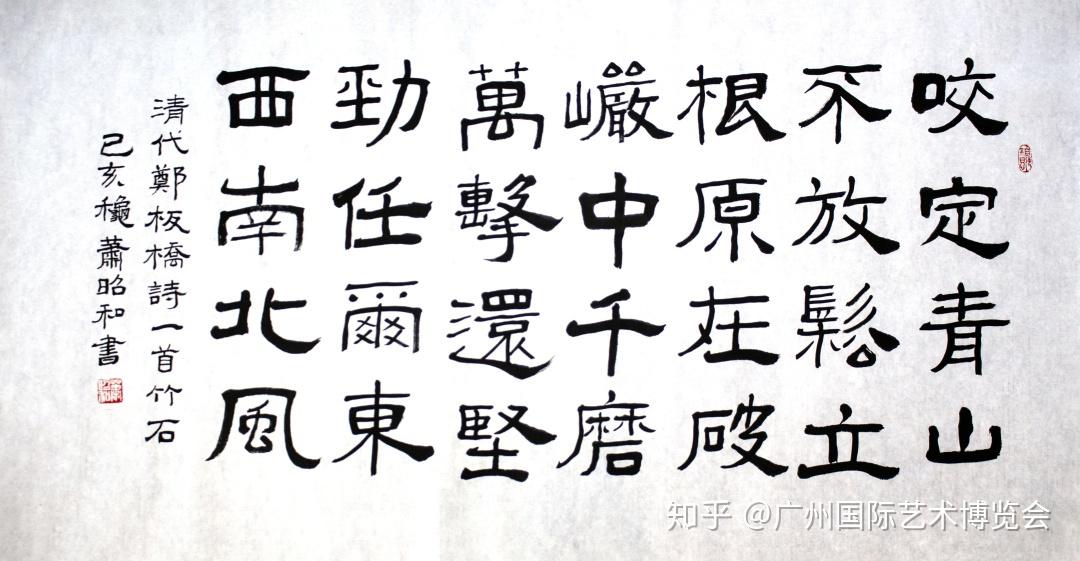 咬定青山
不放鬆立
根原在破
巗中千磨
萬擊還堅
勁任爾東
西南北風
清代鄭板橋詩一首竹石
己亥穐蕭昭和書
知乎 @广州国际艺术博览会